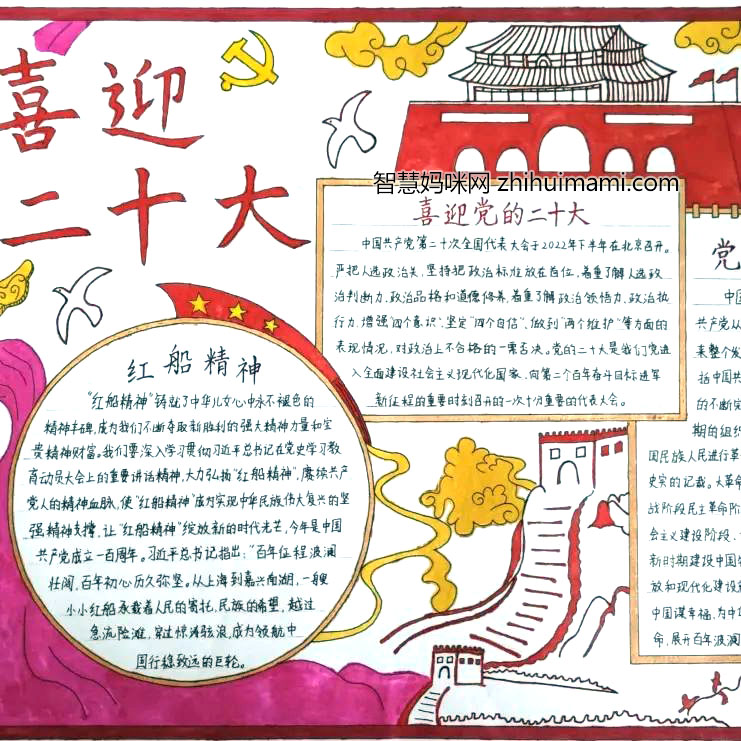 喜迎
二十大
智慧妈咪网 zhihuimami.com
喜迎党的二十大
中国共产党第二十次全国代表大会于2022年下半年在北京召开。
严把人选政治关，坚持把政治标准放在首位，着重了解人选政
治判断力、政治品格和道德修养，着重了解政治领悟力、政治执
行力，增强"四个意识"、坚定"四个自信"、做到"两个维护"等方面的
表现情况，对政治上不合格的一票否决。党的二十大是我们党进
入全面建设社会主义现代化国家、向第二个百年奋斗目标进军
新征程的重要时刻召开的一次十分重要的代表大会。
红船精神
"红船精神"铸就了中华儿女心中永不褪色的
精神丰碑，成为我们不断夺取新胜利的强大精神力量和宝
贵精神财富。我们要深入学习贯彻习近平总书记在党史学习教
育动员大会上的重要讲话精神，大力弘扬"红船精神"，赓续共产
党人的精神血脉，使"红船精神"成为实现中华民族伟大复兴的坚
强精神支撑，让"红船精神"绽放新的时代光芒，今年是中国
共产党成立一百周年。习近平总书记指出："百年征程波澜
壮阔，百年初心历久弥坚。从上海到嘉兴南湖，一艘
小小红船承载着人民的寄托、民族的希望，越过
急流险滩，穿过惊涛骇浪，成为领航中
国行稳致远的巨轮。
党
中国
共产党从
来整个发
括中国共
的不断完
期的组织
国民族人民进行革
史实的记载。大革命
战阶段民主革命阶
会主义建设阶段、
新时期建设中国特
放和现代化建设
中国谋幸福，为中
命，展开百年波澜